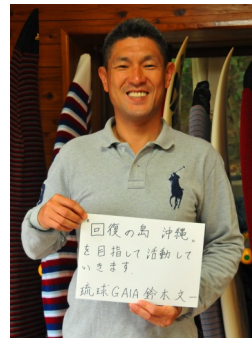 回復の島 沖縄。
を目指して活動して
いきます
琉球GAIA 鈴木文一